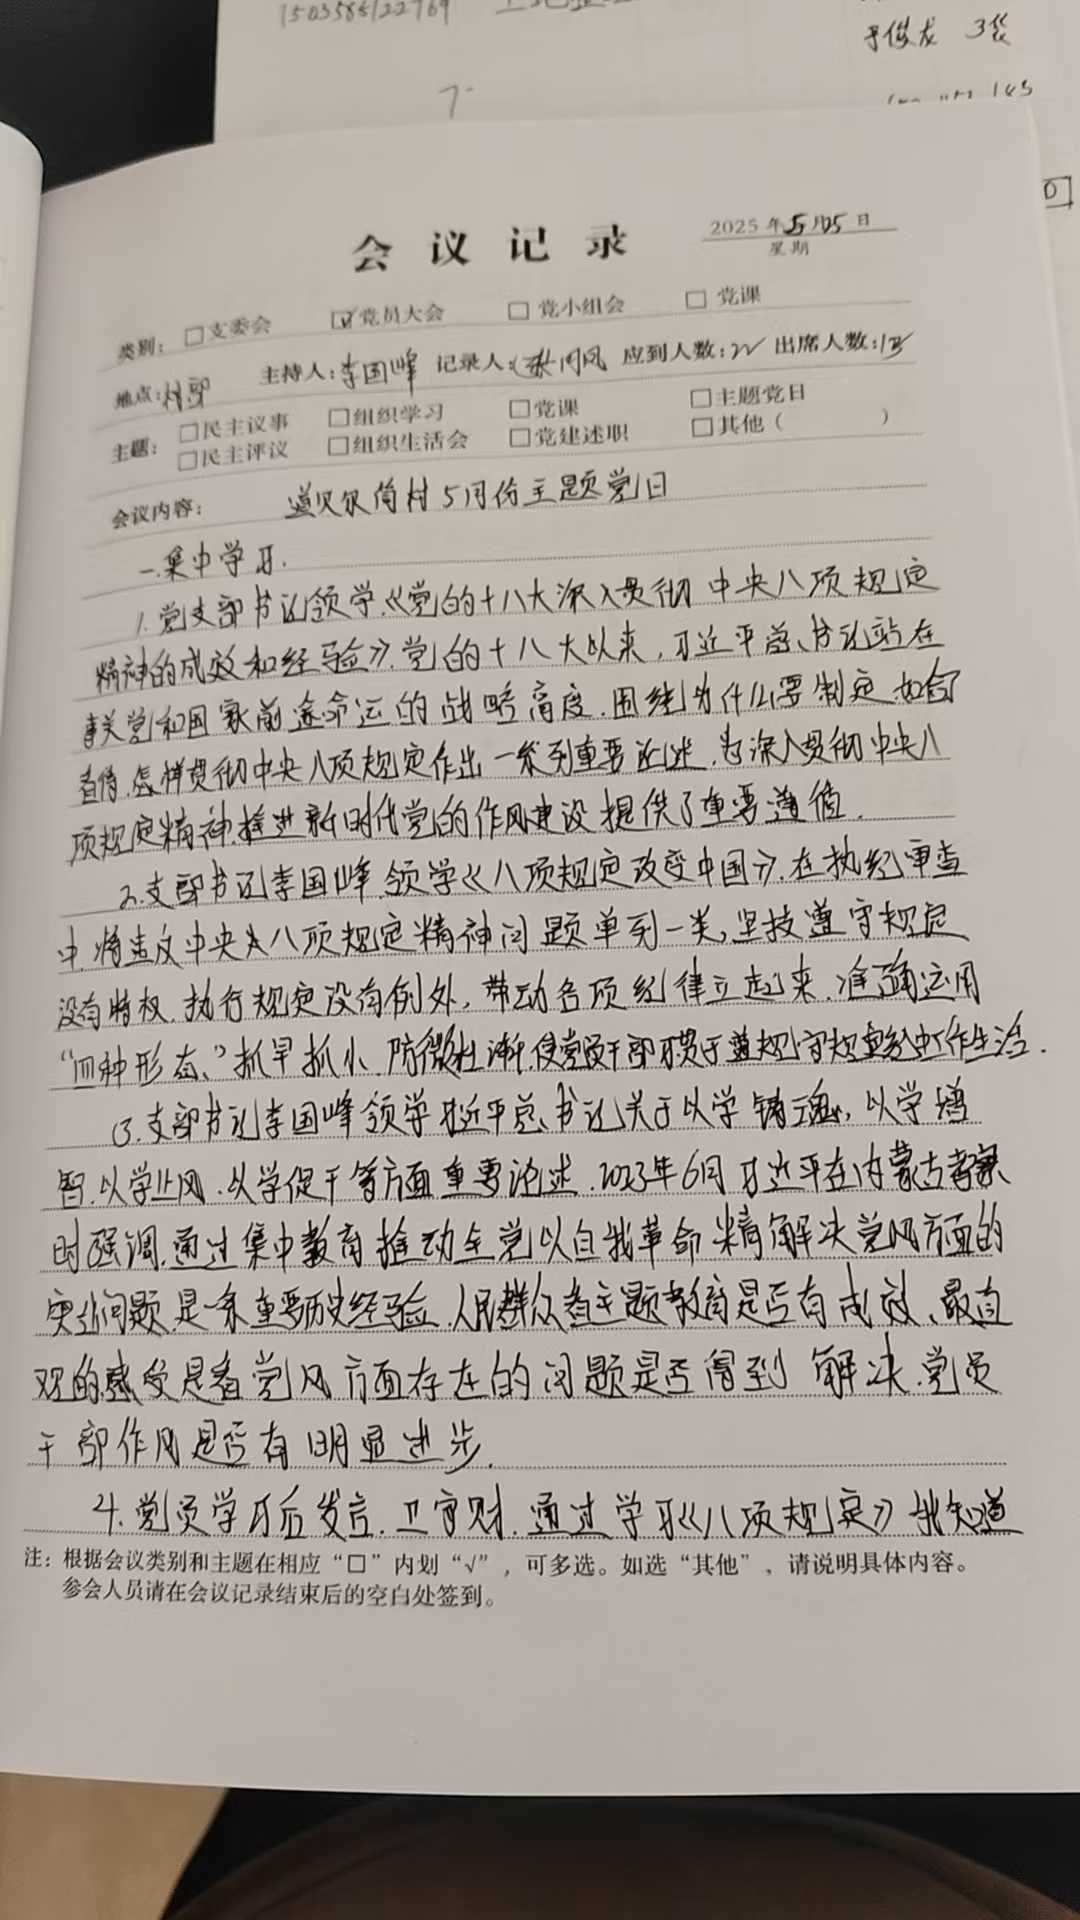 15035856122769
于俊龙 3袋
会议记录
2025年5月05日
星期
类别: □支委会 ☑党员大会 □党小组会 □党课
地点:村部 主持人:李国峰 记录人: 应到人数:22 出席人数:13
主题: □民主议事 □组织学习 □党课 □主题党日
□民主评议 □组织生活会 □党建述职 □其他( )
会议内容: 道贝尔筒村5月份主题党日
一.集中学习.
1.党支部书记领学《党的十八大深入贯彻中央八项规定
精神的成效和经验》.党的十八大以来,习近平总、书记站在
事关党和国家前途命运的战略高度.围绕为什么要制定如何
看待.怎样贯彻中央八项规定作出一系列重要论述.为深入贯彻中央八
项规定精神.推进新时代党的作风建设提供了重要遵循.
2.支部书记李国峰领学《八项规定改变中国》.在执纪审查
中.将违反中央八项规定精神问题单列一类,坚持遵守规定
没有特权.执行规定没有例外,带动各项纪律立起来.准确运用
“四种形态、”抓早抓小.防微杜渐.使党员干部习惯于遵规守规重纪中工作生活.
3.支部书记李国峰领学习近平总、书记关于以学铸魂,以学增
智.以学正风.以学促干等方面重要论述.2023年6月习近平在内蒙古考察
时强调.通过集中教育推动全党以自我革命精解决党风方面的
突出问题.是一条重要历史经验.人民群众看主题教育是否有成效、最直
观的感受是看党风方面存在的问题是否得到解决.党员
干部作风是否有明显进步.
4.党员学习后发言.卫守财.通过学习《八项规定》我知道
注:根据会议类别和主题在相应“□”内划“√”,可多选。如选“其他”,请说明具体内容。
参会人员请在会议记录结束后的空白处签到。